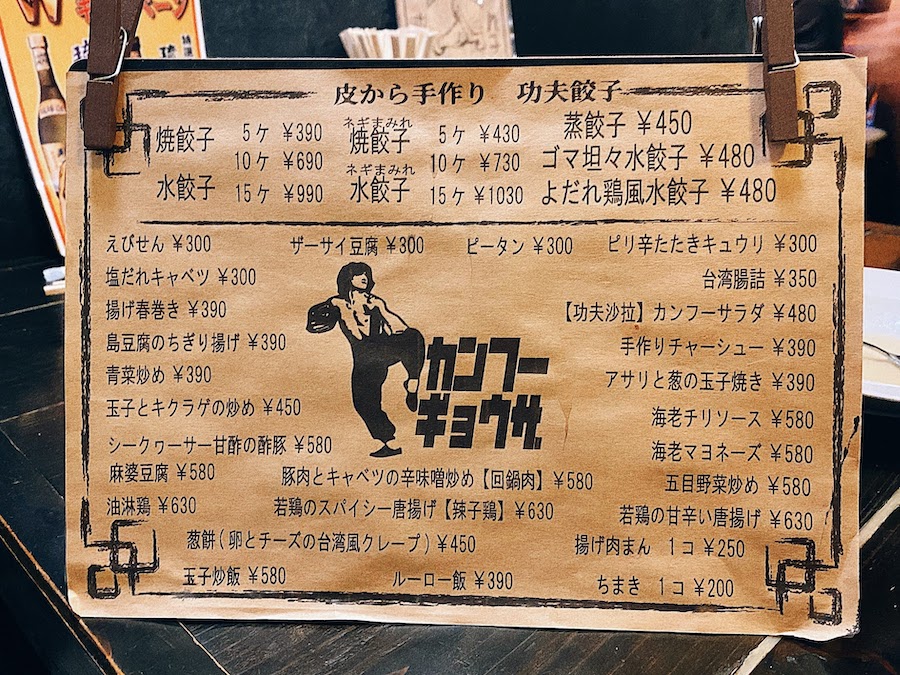 皮から手作り 功夫餃子
焼餃子 5ケ ¥390 ネギまみれ焼餃子 5ケ ¥430 蒸餃子 ¥450
10ケ ¥690 10ケ ¥730 ゴマ坦々水餃子 ¥480
水餃子 15ケ ¥990 ネギまみれ水餃子 15ケ ¥1030 よだれ鶏風水餃子 ¥480
えびせん ¥300 ザーサイ豆腐 ¥300 ピータン ¥300 ピリ辛たたきキュウリ ¥300
塩だれキャベツ ¥300 台湾腸詰 ¥350
揚げ春巻き ¥390 【功夫沙拉】カンフーサラダ ¥480
島豆腐のちぎり揚げ ¥390 手作りチャーシュー ¥390
青菜炒め ¥390 アサリと葱の玉子焼き ¥390
カンフー
ギョウザ
玉子とキクラゲの炒め ¥450 海老チリソース ¥580
シークヮーサー甘酢の酢豚 ¥580 海老マヨネーズ ¥580
麻婆豆腐 ¥580 豚肉とキャベツの辛味噌炒め【回鍋肉】 ¥580 五目野菜炒め ¥580
油淋鶏 ¥630 若鶏のスパイシー唐揚げ【辣子鶏】 ¥630 若鶏の甘辛い唐揚げ ¥630
葱餅(卵とチーズの台湾風クレープ) ¥450 揚げ肉まん 1コ ¥250
玉子炒飯 ¥580 ルーロー飯 ¥390 ちまき 1コ ¥200